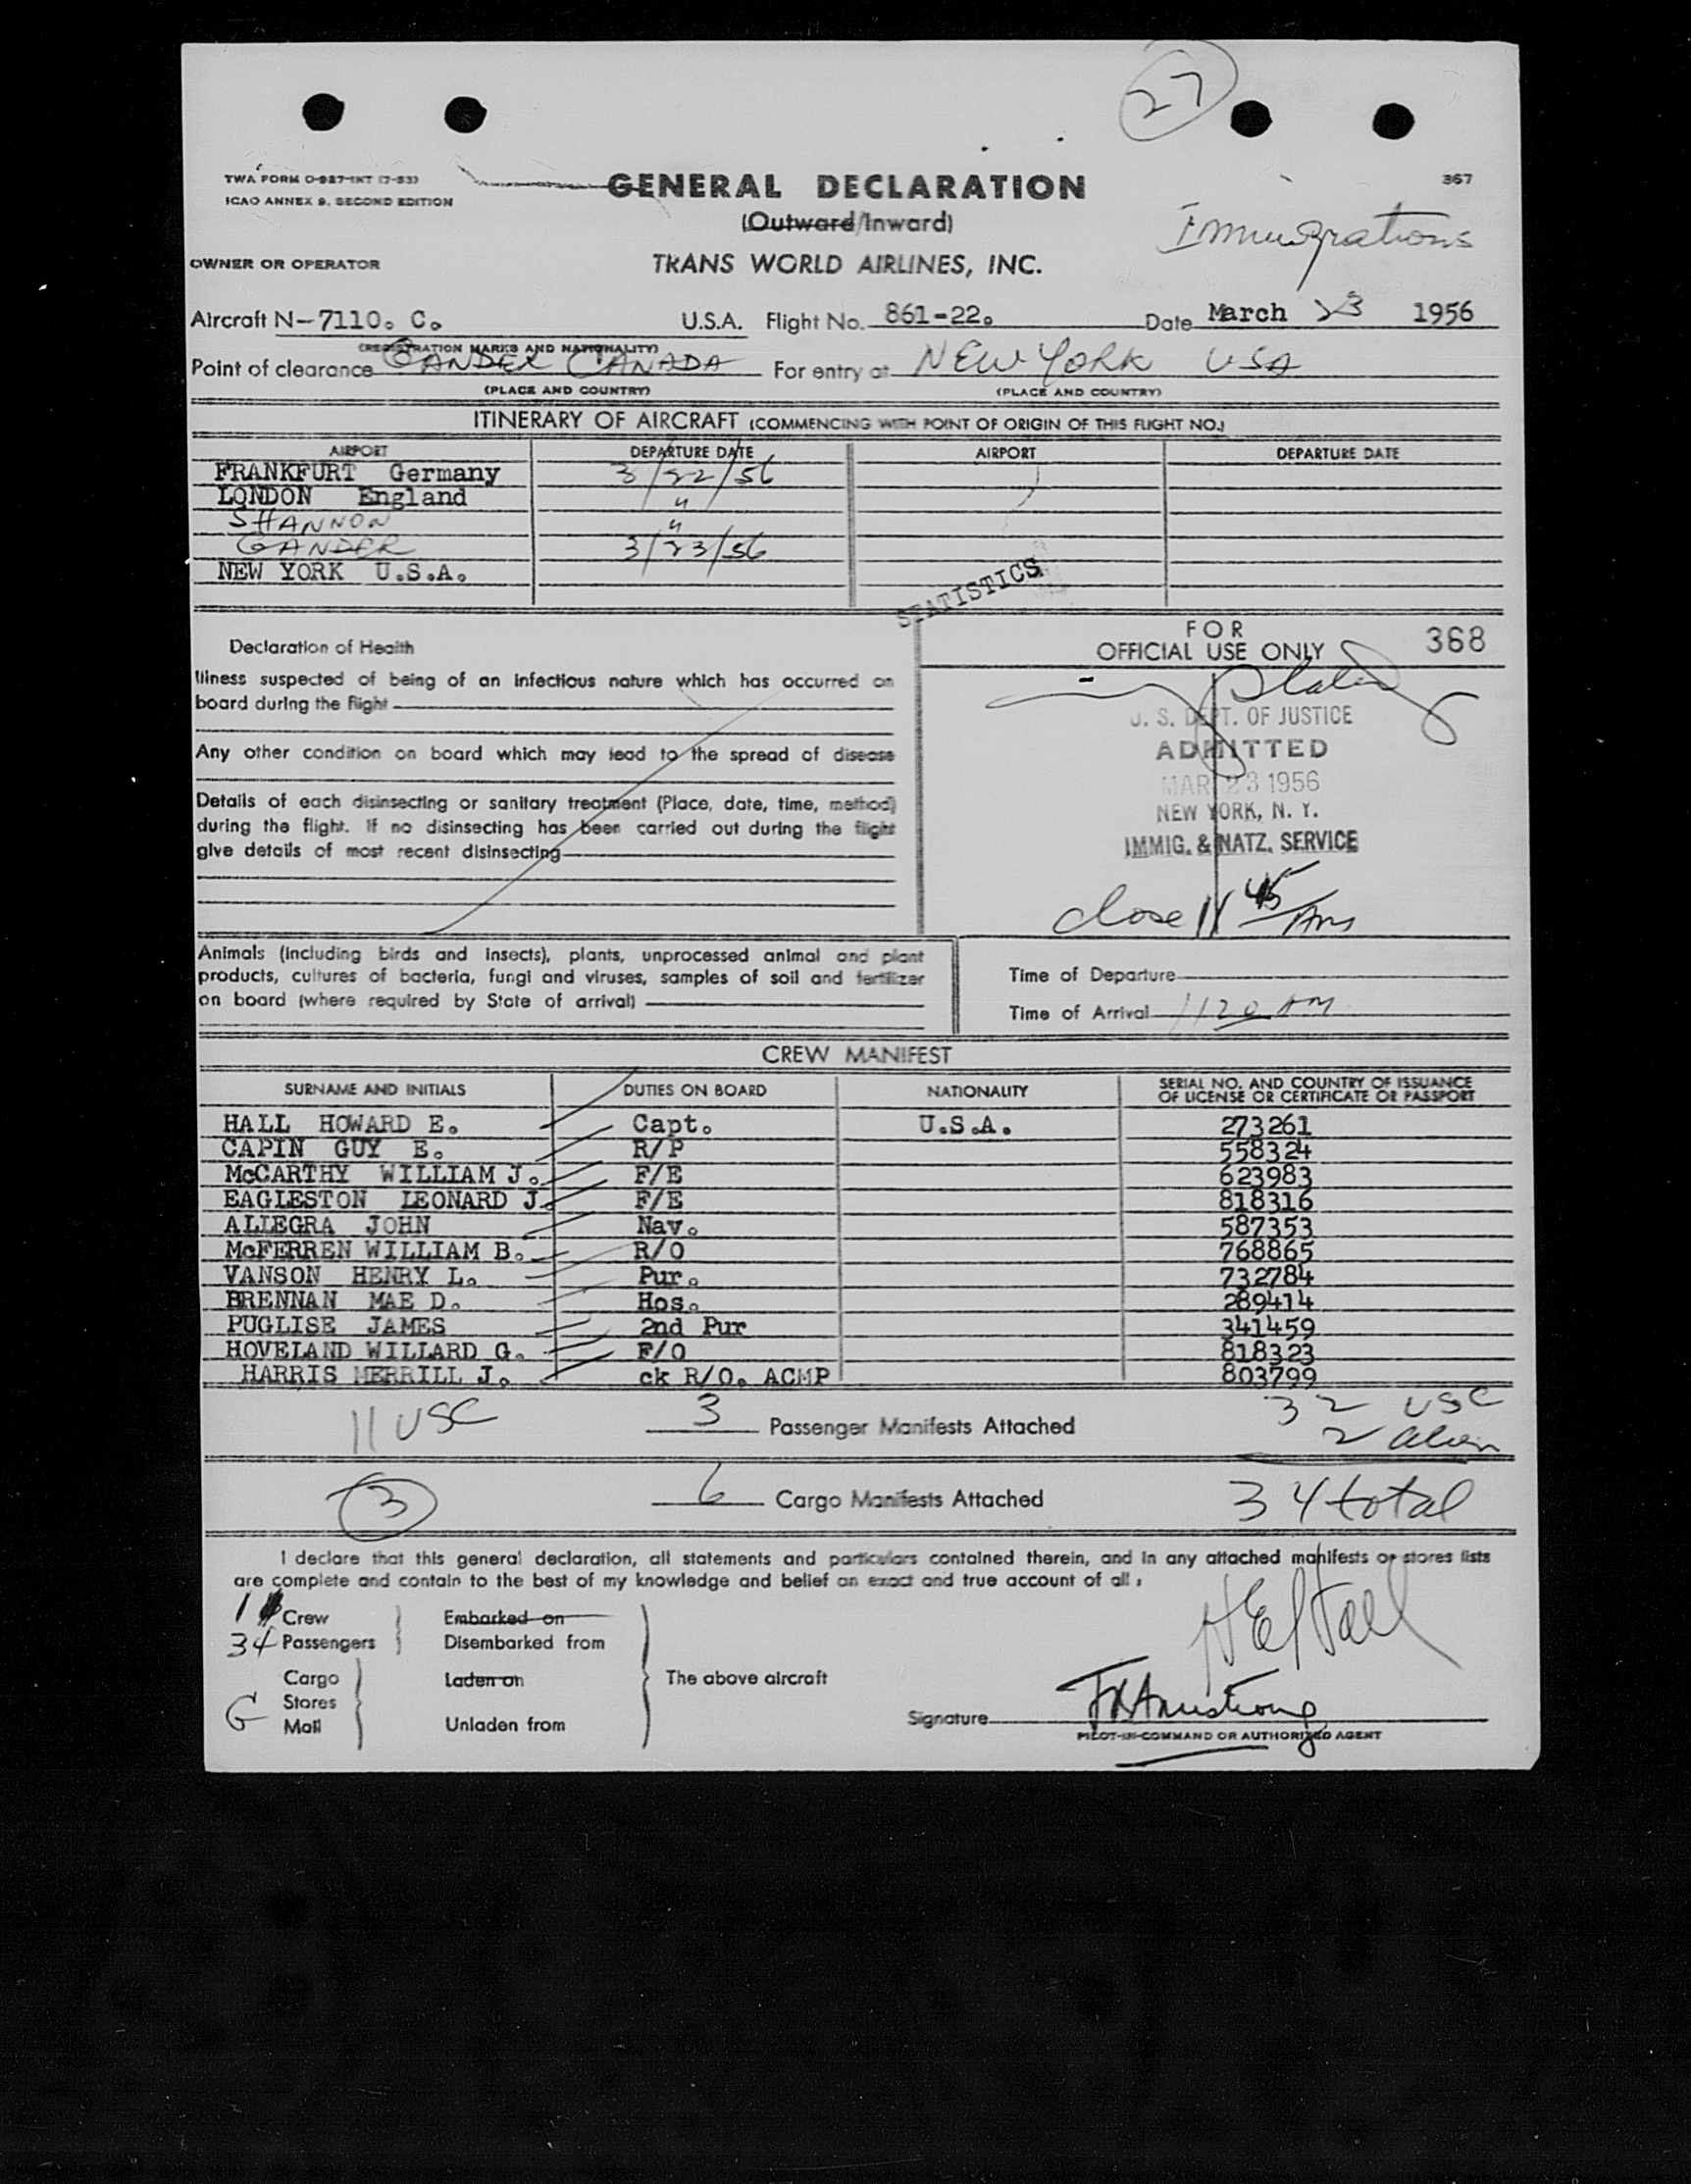 27
TWA FORM O-927-INT (7-53)
ICAO ANNEX 9, SECOND EDITION
GENERAL DECLARATION
367
(Outward/Inward)
Immigrations
OWNER OR OPERATOR
TRANS WORLD AIRLINES, INC.
Aircraft N-7110. C. U.S.A. Flight No. 861-22. Date March 23 1956
(REGISTRATION MARKS AND NATIONALITY)
Point of clearance GANDER CANADA For entry at NEW YORK USA
(PLACE AND COUNTRY) (PLACE AND COUNTRY)
ITINERARY OF AIRCRAFT (COMMENCING WITH POINT OF ORIGIN OF THIS FLIGHT NO.)
AIRPORT DEPARTURE DATE AIRPORT DEPARTURE DATE
FRANKFURT Germany 3/22/56
LONDON England "
SHANNON "
GANDER 3/23/56
NEW YORK U.S.A.
STATISTICS
FOR
OFFICIAL USE ONLY
368
Declaration of Health
Illness suspected of being of an infectious nature which has occurred on
board during the flight
Any other condition on board which may lead to the spread of disease
Details of each disinsecting or sanitary treatment (Place, date, time, method)
during the flight. If no disinsecting has been carried out during the flight
give details of most recent disinsecting
U. S. DEPT. OF JUSTICE
ADMITTED
MAR 23 1956
NEW YORK, N. Y.
IMMIG. & NATZ. SERVICE
close 11 45 Am
Animals (including birds and insects), plants, unprocessed animal and plant
products, cultures of bacteria, fungi and viruses, samples of soil and fertilizer
on board (where required by State of arrival)
Time of Departure
Time of Arrival 1120 AM
CREW MANIFEST
SURNAME AND INITIALS DUTIES ON BOARD NATIONALITY SERIAL NO. AND COUNTRY OF ISSUANCE
OF LICENSE OR CERTIFICATE OR PASSPORT
HALL HOWARD E. Capt. U.S.A. 273261
CAPIN GUY E. R/P 558324
McCARTHY WILLIAM J. F/E 623983
EAGLESTON LEONARD J. F/E 818316
ALLEGRA JOHN Nav. 587353
McFERREN WILLIAM B. R/O 768865
VANSON HENRY L. Pur. 732784
BRENNAN MAE D. Hos. 289414
PUGLISE JAMES 2nd Pur 341459
HOVELAND WILLARD G. F/O 818323
HARRIS MERRILL J. ck R/O. ACMP 803799
11 USC 3 Passenger Manifests Attached 32 USC
2 alien
3 6 Cargo Manifests Attached 34 total
I declare that this general declaration, all statements and particulars contained therein, and in any attached manifests or stores lists
are complete and contain to the best of my knowledge and belief an exact and true account of all :
11 Crew Embarked on
34 Passengers Disembarked from
Cargo Laden on The above aircraft
G Stores
Mail Unladen from
HE Hall
Signature Armstrong
PILOT-IN-COMMAND OR AUTHORIZED AGENT